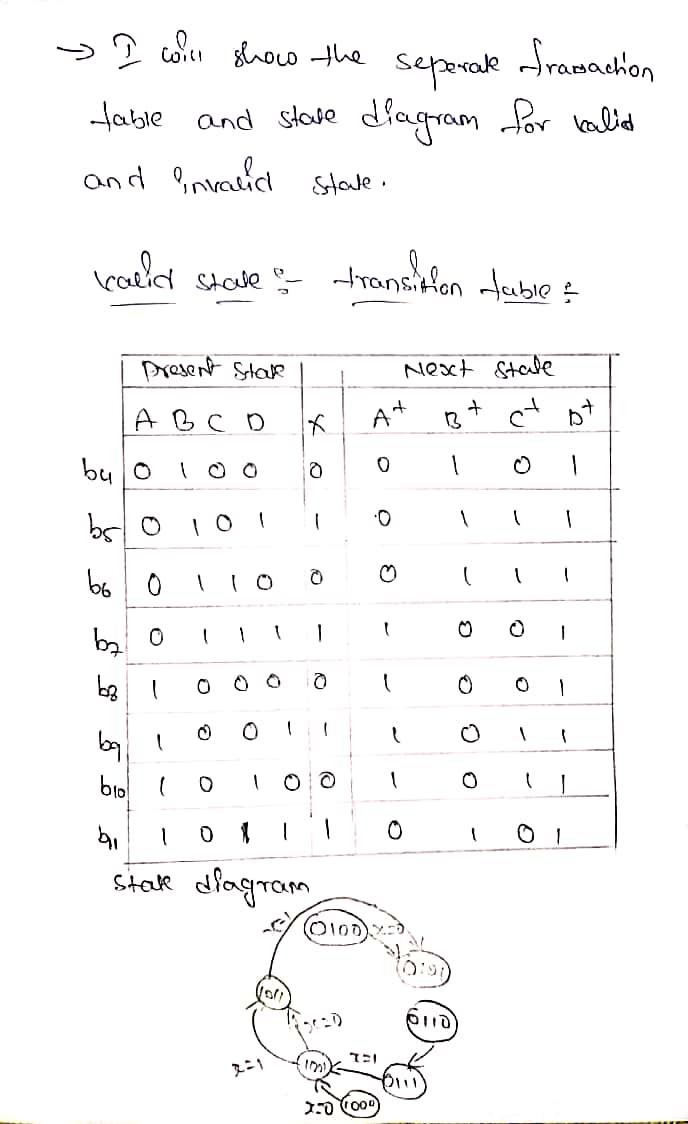 → I will show the seperate Transaction
table and state diagram for valid
and invalid state.
valid state :- transition table :
Present State Next State
A B C D X A+ B+ C+ D+
b4 0 1 0 0 0 0 1 0 1
b5 0 1 0 1 1 0 1 1 1
b6 0 1 1 0 0 0 1 1 1
b7 0 1 1 1 1 1 0 0 1
b8 1 0 0 0 0 1 0 0 1
b9 1 0 0 1 1 1 0 1 1
b10 1 0 1 0 0 1 0 1 1
b11 1 0 1 1 1 0 1 0 1
State diagram
0100 x=0
0101
1011
x=0 0110
x=1 1001 x=1
0111
x=0 1000